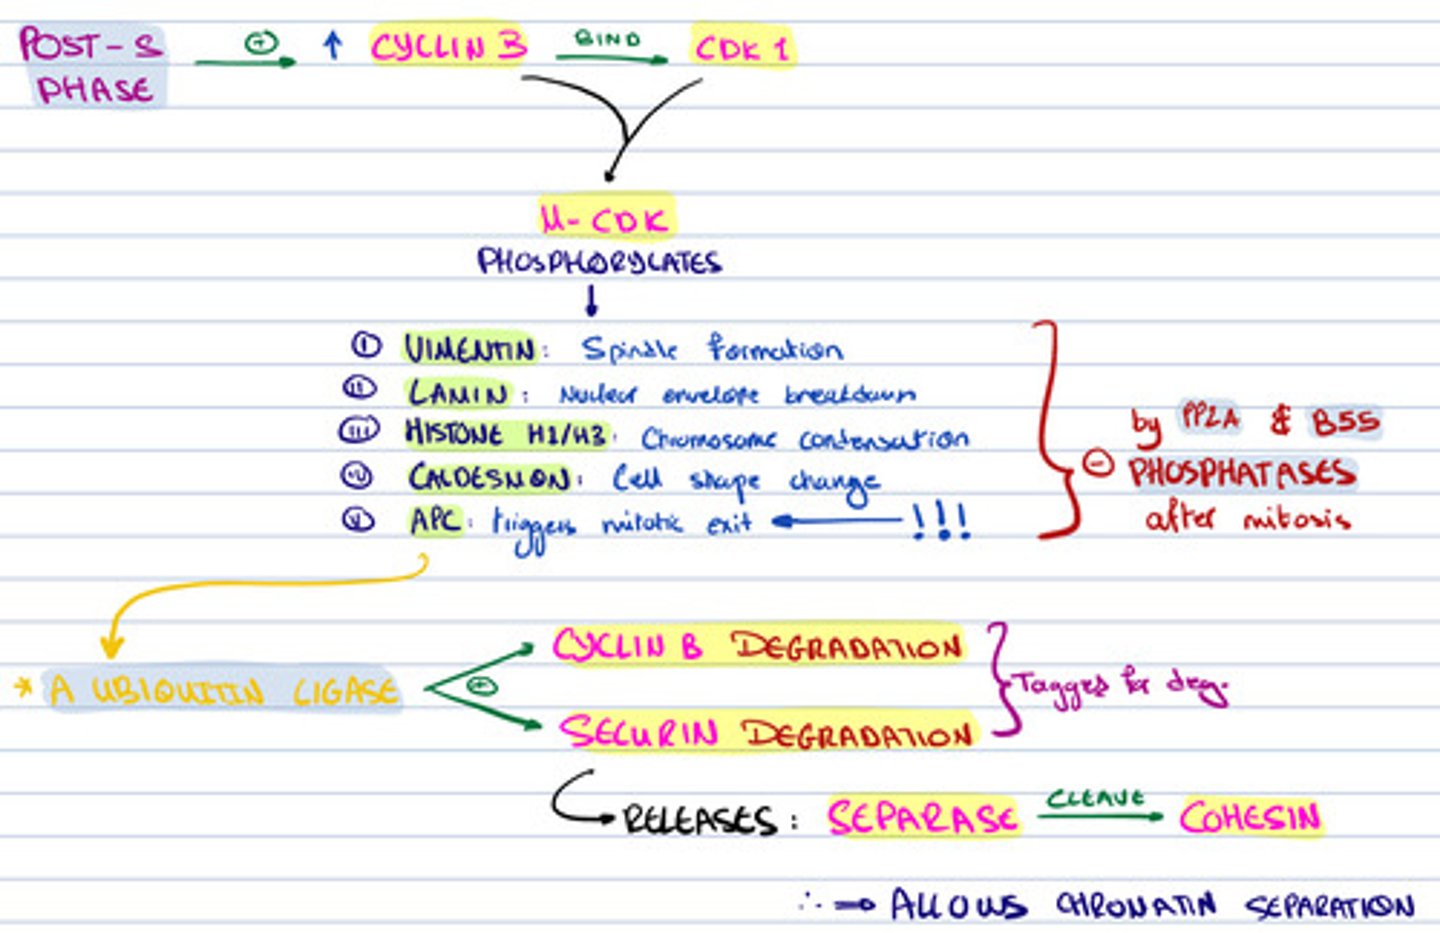 POST-S PHASE ⊕ ↑ CYCLIN B BIND CDK 1
M-CDK
PHOSPHORYLATES
I VIMENTIN: Spindle formation
II LAMIN: Nuclear envelope breakdown
III HISTONE H1/H3: Chromosome condensation
IV CALDESMON: Cell shape change
V APC: triggers mitotic exit ← !!!
⊖ by PP2A & B55
PHOSPHATASES
after mitosis
* A UBIQUITIN LIGASE ⊕
CYCLIN B DEGRADATION
SECURIN DEGRADATION
Tagged for deg.
RELEASES: SEPARASE CLEAVE COHESIN
∴ → ALLOWS CHROMATIN SEPARATION